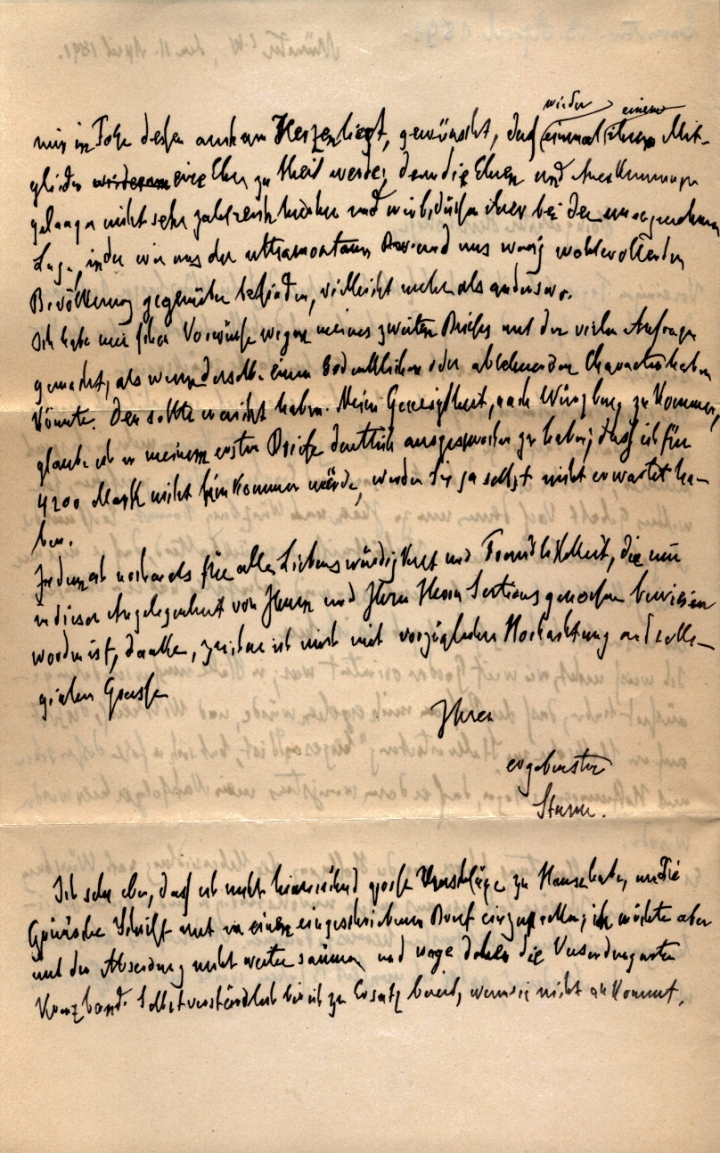 wieder einem
mir in Folge dessen auch am Herzen liegt, gewünscht, daß einmal ihrem Mit-
gliede wiederum eine Ehre zu theil werde; denn die Ehren und Anerkennungen
gelangen nicht sehr zahlreich hierher und wir bedürfen ihrer bei der unangenehmen
Lage, in der wir uns der ultramontanen und uns wenig wohlwollenden
Bevölkerung gegenüber befinden, vielleicht mehr als anderswo.
Ich habe mir schon Vorwürfe wegen meines zweiten Briefes mit den vielen Anfragen
gemacht, als wenn derselbe einen bedenklichen oder ablehnenden Charakter haben
könnte. Den sollte er nicht haben. Meine Geneigtheit, nach Würzburg zu kommen,
glaube ich in meinem ersten Briefe deutlich ausgesprochen zu haben; daß ich für
4200 Mark nicht hinkommen würde, werden Sie ja selbst nicht erwartet ha-
ben.
Indem ich nochmals für alle Liebenswürdigkeit und Freundlichkeit, die mir
in dieser Angelegenheit von Ihnen und Ihren Herrn Sections genossen bewiesen
worden ist, danke, zeichne ich mich mit vorzüglicher Hochachtung und colle-
gialem Grusse
Ihren
ergebenster
Sturm.
Ich sehe eben, daß ich nicht hinreichend große Umschläge zu Hause habe, um die
Schrift mit in einen eingeschriebenen Brief einzustellen; ich möchte aber
mit der Absendung nicht weiter säumen und wage daher die Versendung unter
Kreuzband. Selbstverständlich bin ich zu Ersatz bereit, wenn sie nicht ankommt.